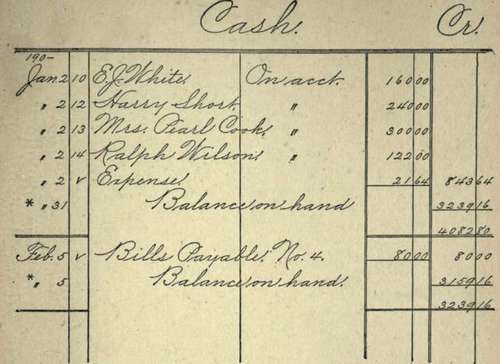 Cash. Cr.
190-
Jan 2 10 E.J. White On acct. 160 00
" 2 12 Harry Short " 240 00
" 2 13 Mrs. Pearl Cook " 300 00
" 2 14 Ralph Wilson " 122 00
" 2 v Expense 21 64 843 64
* " 31 Balance on hand 3239 16
4082 80
Feb. 5 v Bills Payable No. 4. 80 00 80 00
* " 5 Balance on hand 3159 16
3239 16